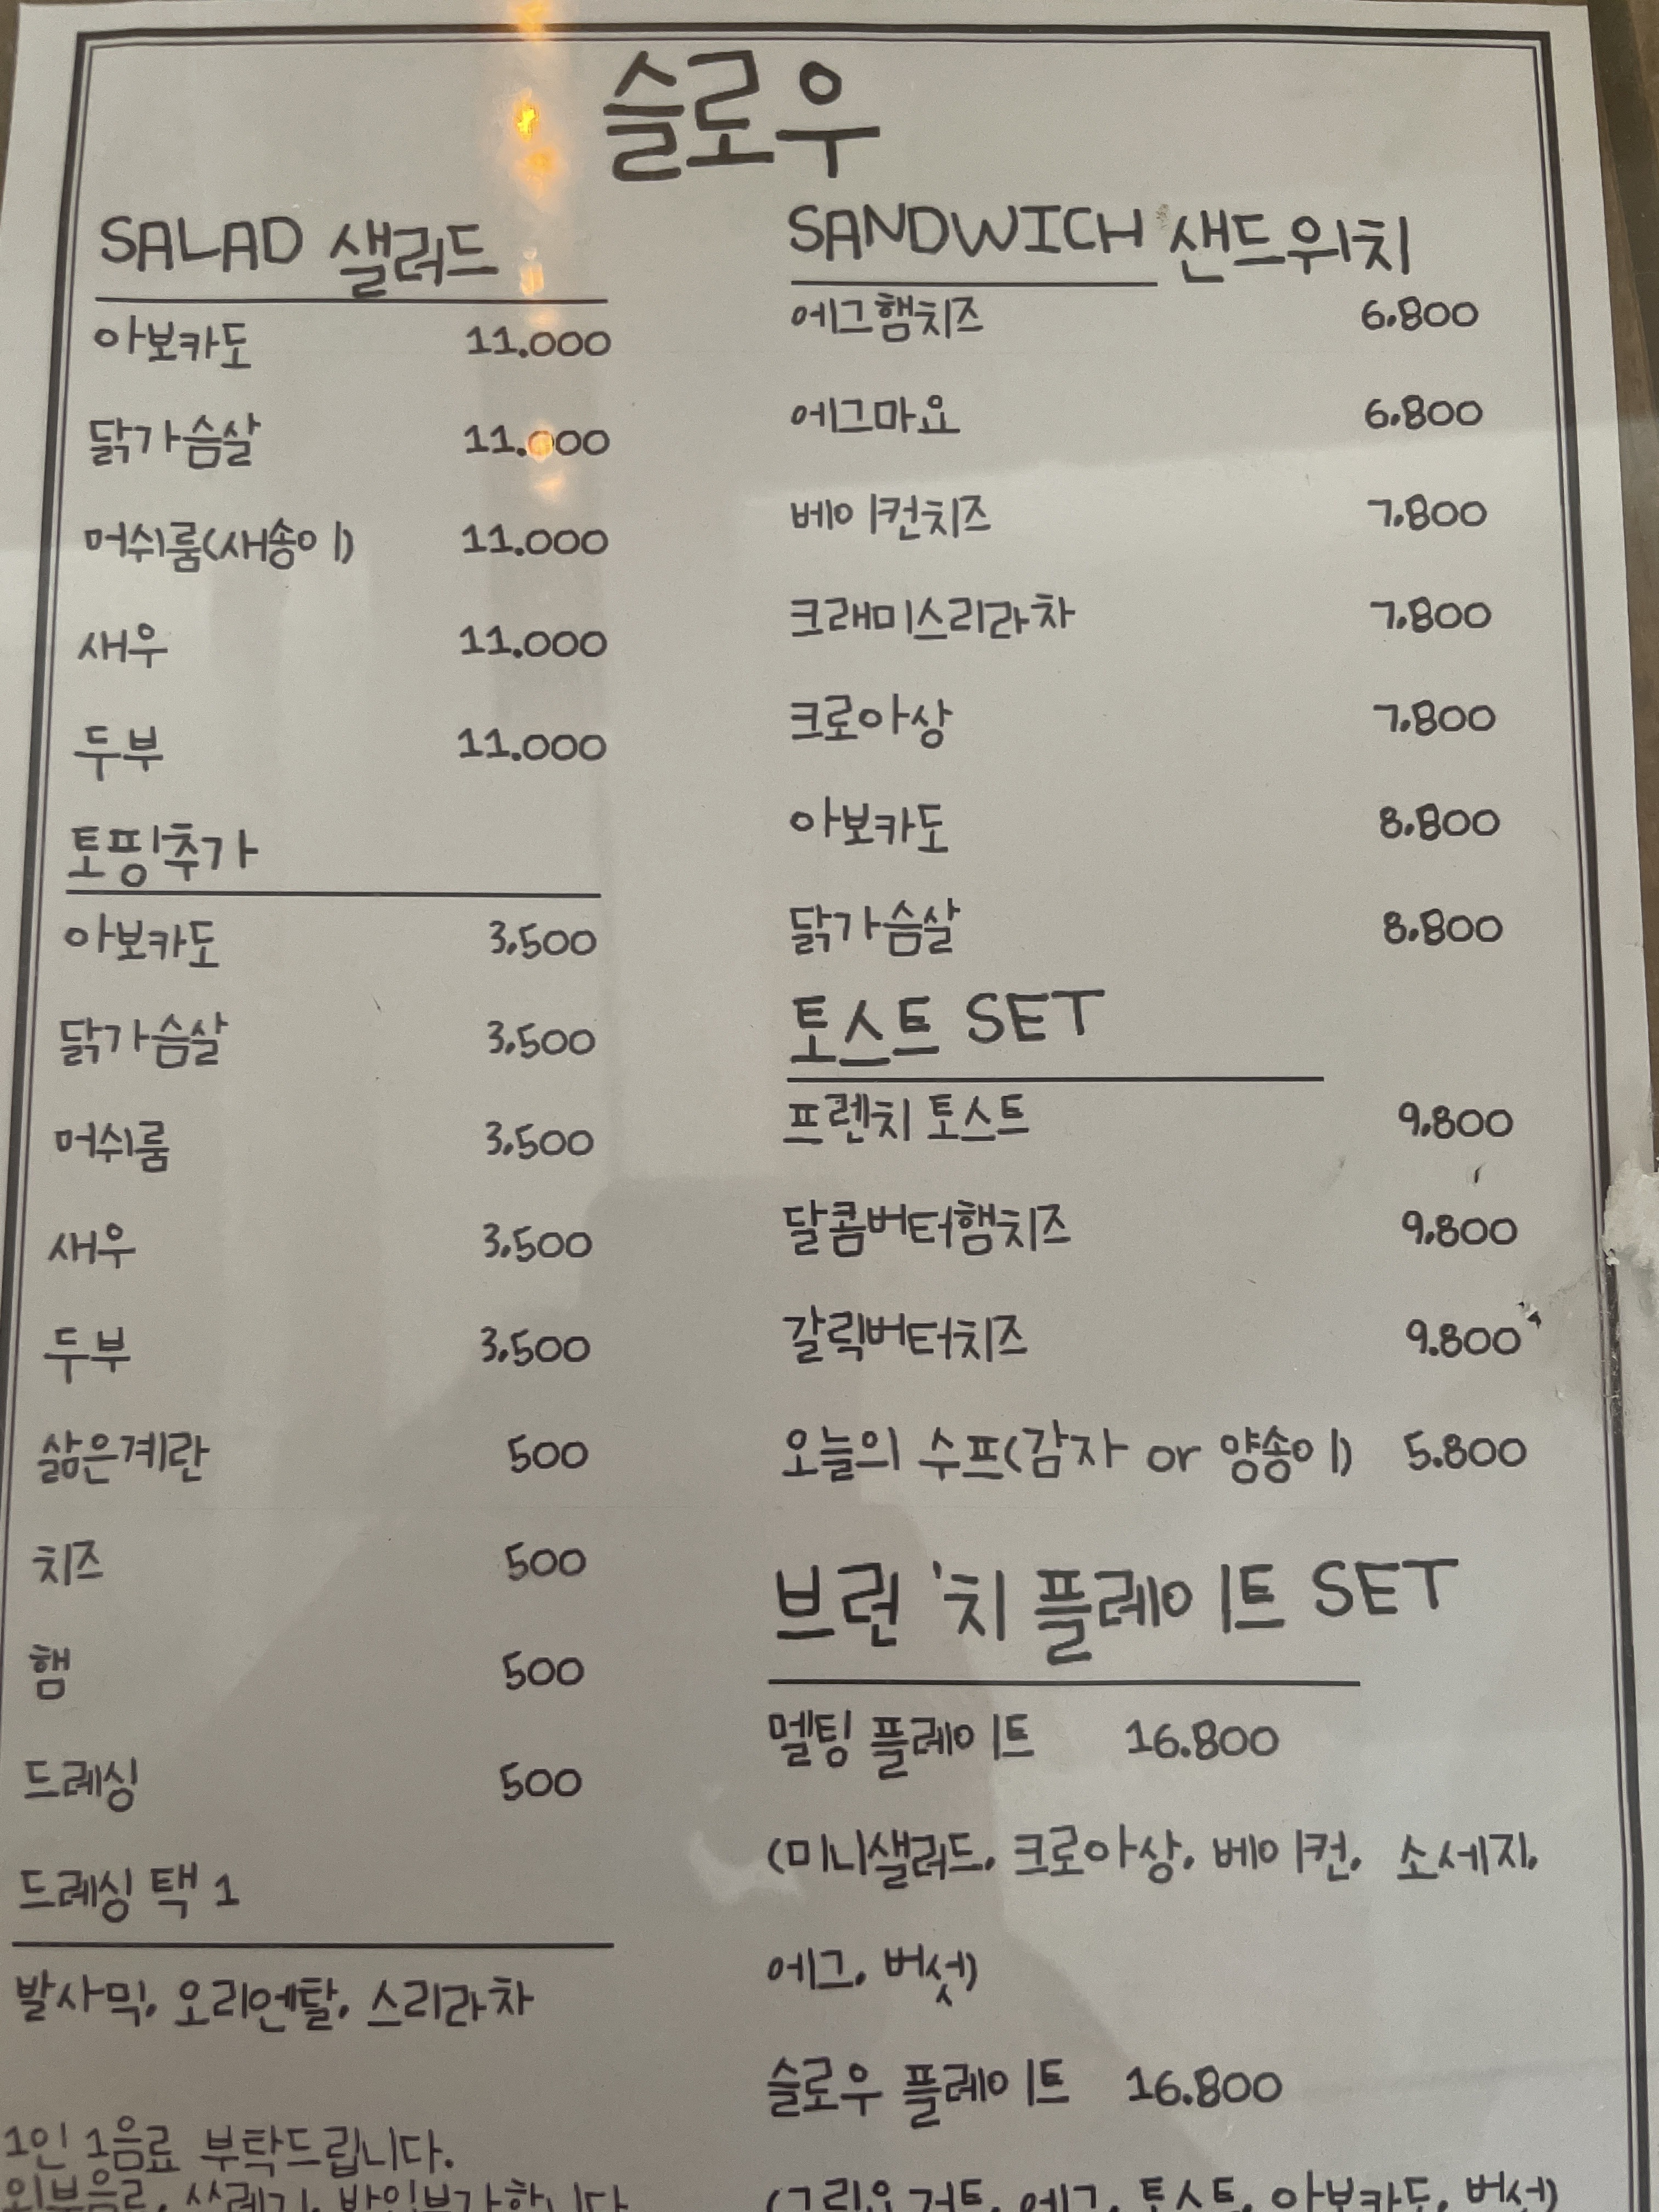 슬로우
SALAD 샐러드
아보카도 11.000
닭가슴살 11.000
머쉬룸(새송이) 11.000
새우 11.000
두부 11.000
토핑추가
아보카도 3.500
닭가슴살 3.500
머쉬룸 3.500
새우 3.500
두부 3.500
삶은계란 500
치즈 500
햄 500
드레싱 500
드레싱 택 1
발사믹, 오리엔탈, 스리라차
1인 1음료 부탁드립니다.
외부음료, 쓰레기, 반입불가합니다
SANDWICH 샌드위치
에그햄치즈 6.800
에그마요 6.800
베이컨치즈 7.800
크래미스리라차 7.800
크로아상 7.800
아보카도 8.800
닭가슴살 8.800
토스트 SET
프렌치 토스트 9.800
달콤버터햄치즈 9.800
갈릭버터치즈 9.800
오늘의 수프(감자 or 양송이) 5.800
브런'치 플레이트 SET
멜팅 플레이트 16.800
(미니샐러드, 크로아상, 베이컨, 소세지,
에그, 버섯)
슬로우 플레이트 16.800
(그릭요거트, 에그, 토스트, 아보카도, 버섯)